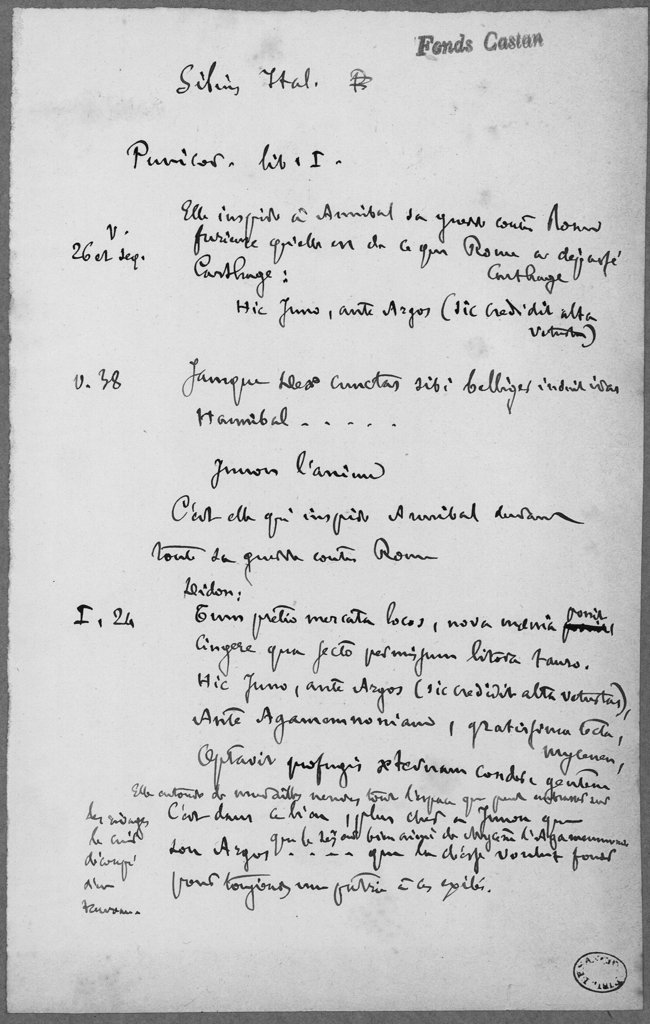 Fonds Castan
Silius Ital.
Punicor. lib. I.
Elle inspire à Annibal sa guerre contre Rome
v.
26 et seq.
furieuse qu'elle est de ce que Rome a dépassé
Carthage :
Carthage
Hic Juno, ante Argos (sic credidit alta
vetustas)
v. 38
Jamque Deæ cunctas sibi belliger induit iras
Hannibal . . . . .
Junon l'anime
C'est elle qui inspire Annibal durant
toute sa guerre contre Rome
Didon :
I, 24
Tum pretio mercata locos, nova mœnia ponit
Cingere qua secto permissum litora tauro.
Hic Juno, ante Argos (sic credidit alta vetustas),
Ante Agamemnoniam, gratissima tecta,
Mycenen,
Optavit profugis æternam condere gentem
Elle entoure de murailles neuves tout l'espace que peut embrasser sur
les rivages
le cuir
découpé
d'un
taureau.
C'est dans ce lieu, plus cher à Junon que
que le séjour bien aimé de Mycène l'Agamemnonienne
son Argos . . . . que la déesse voulut fonder
pour toujours une patrie à ces exilés.